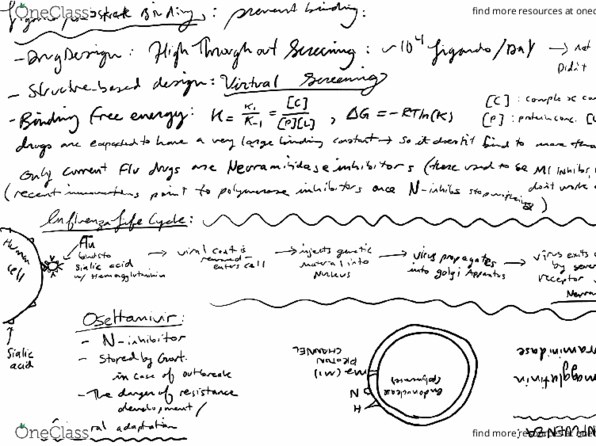 OneClass
find more resources at onec
Binding: prevent binding:
- Drug Design: High Throughout Screening: ~10⁴ ligands/Day → not
Didn't
- Structure-based design: Virtual Screening
- Binding free energy: K = K₁/K₋₁ = [C]/[P][L], ΔG = -RTln(K)
[C]: complex conc
[P]: protein conc. [L
drugs are expected to have a very large binding constant → so it doesn't bind to more than
Only current flu drugs are Neuramidase inhibitors (there used to be M1 inhibitor,
don't work
(recent innovations point to polymerase inhibitors once N-inhibs stop working)
Influenza Life Cycle:
Human Cell
Flu
binds to
Sialic acid
w/ Hemaglutinin
→ viral coat is
removed -
enters cell
→ injects genetic
material into
Nucleus
→ virus propagates
into golgi Apparatus
→ virus exits
by
receptor
Sialic
acid
Oseltamivir:
- N-inhibitor
- Stored by Govt.
in case of outbreak
- The danger of resistance
development/
adaptation
PROTON
CHANNEL
M2 (M1)
N
H
Endonuclease
(polymerase)
raminidase
magglutinin
NFLUENZA
OneClass
find more resources at onec